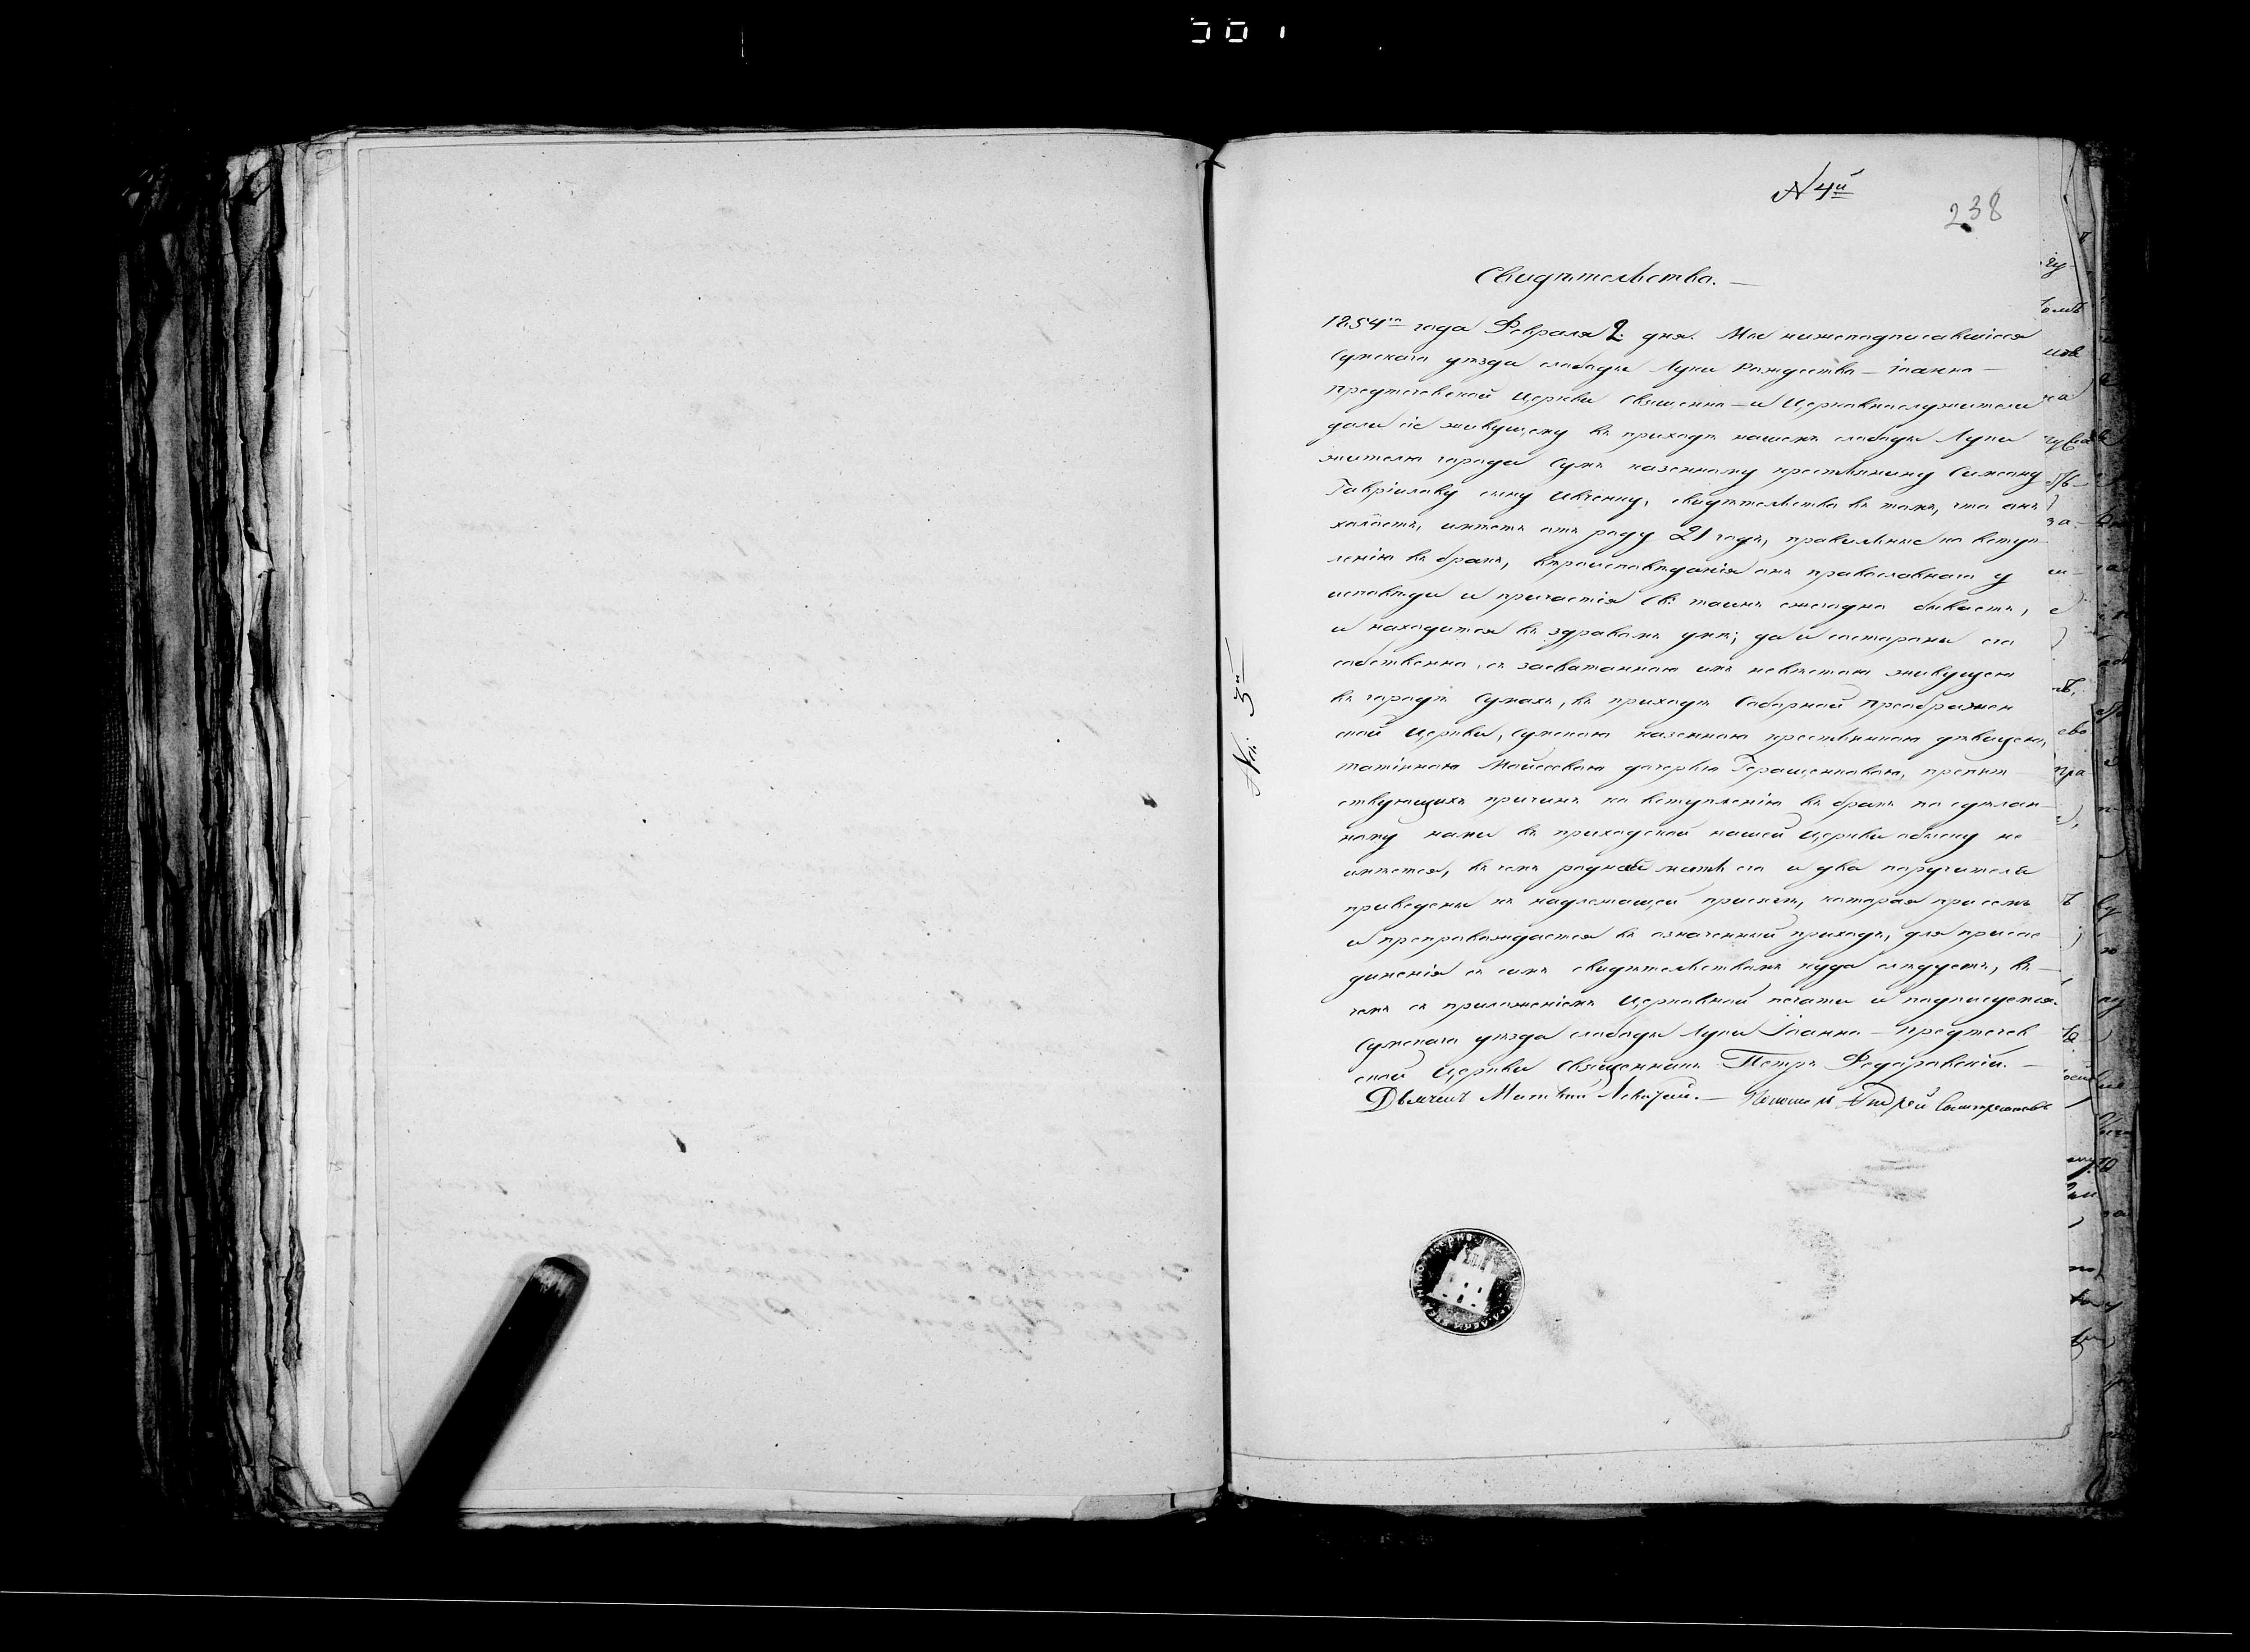 N 4й
238
Свидѣтельство.—
1854го года Февраля 2 дня. Мы нижеподписавшіеся
Сумскаго уѣзда слободы Луки Рождества-Іоанно-
предтечевской Церкви Священно-и Церковнослужители
дали сіе живущему въ приходѣ нашемъ слободы Луки
жителю города Сумъ казенному крестьянину Симеону
Гавріилову сыну Ивченку, свидѣтельство въ томъ, что онъ
холостъ, имѣетъ отъ роду 21 годъ, правильные ко вступ
ленію въ бракъ, вѣроисповѣданія онъ православнаго у
исповѣди и причастія Св: таинъ ежегодно бываетъ,
и находится въ здравомъ умѣ; да и состороны его
собственно, съ засватанною имъ невѣстою живущею
въ городѣ Сумахъ, въ приходѣ Соборной Преображен
ской Церкви, Сумскою казенною крестьянкою дѣвицею,
Татіаною Мойсеевою дочерью Геращенковою, препят
ствующихъ причинъ ко вступленію въ бракъ по сдѣлан
ному нами въ приходской нашей Церкви обыску не
имѣется, въ чемъ родной мать его и два поручителя
приведены къ надлежащей присягѣ, которая при семъ
и препровождается въ означенный приходъ, для присое
диненія съ симъ свидѣтельствомъ куда слѣдуетъ, въ—
чемъ съ приложеніемъ Церковной печати и подписуемся.
Сумскаго уѣзда слободы Луки Іоанно-Предтечев
ской Церкви Священникъ Петръ Федоровскій.—
Дьячекъ Матвей — Пономарь Андрей
№ 3й